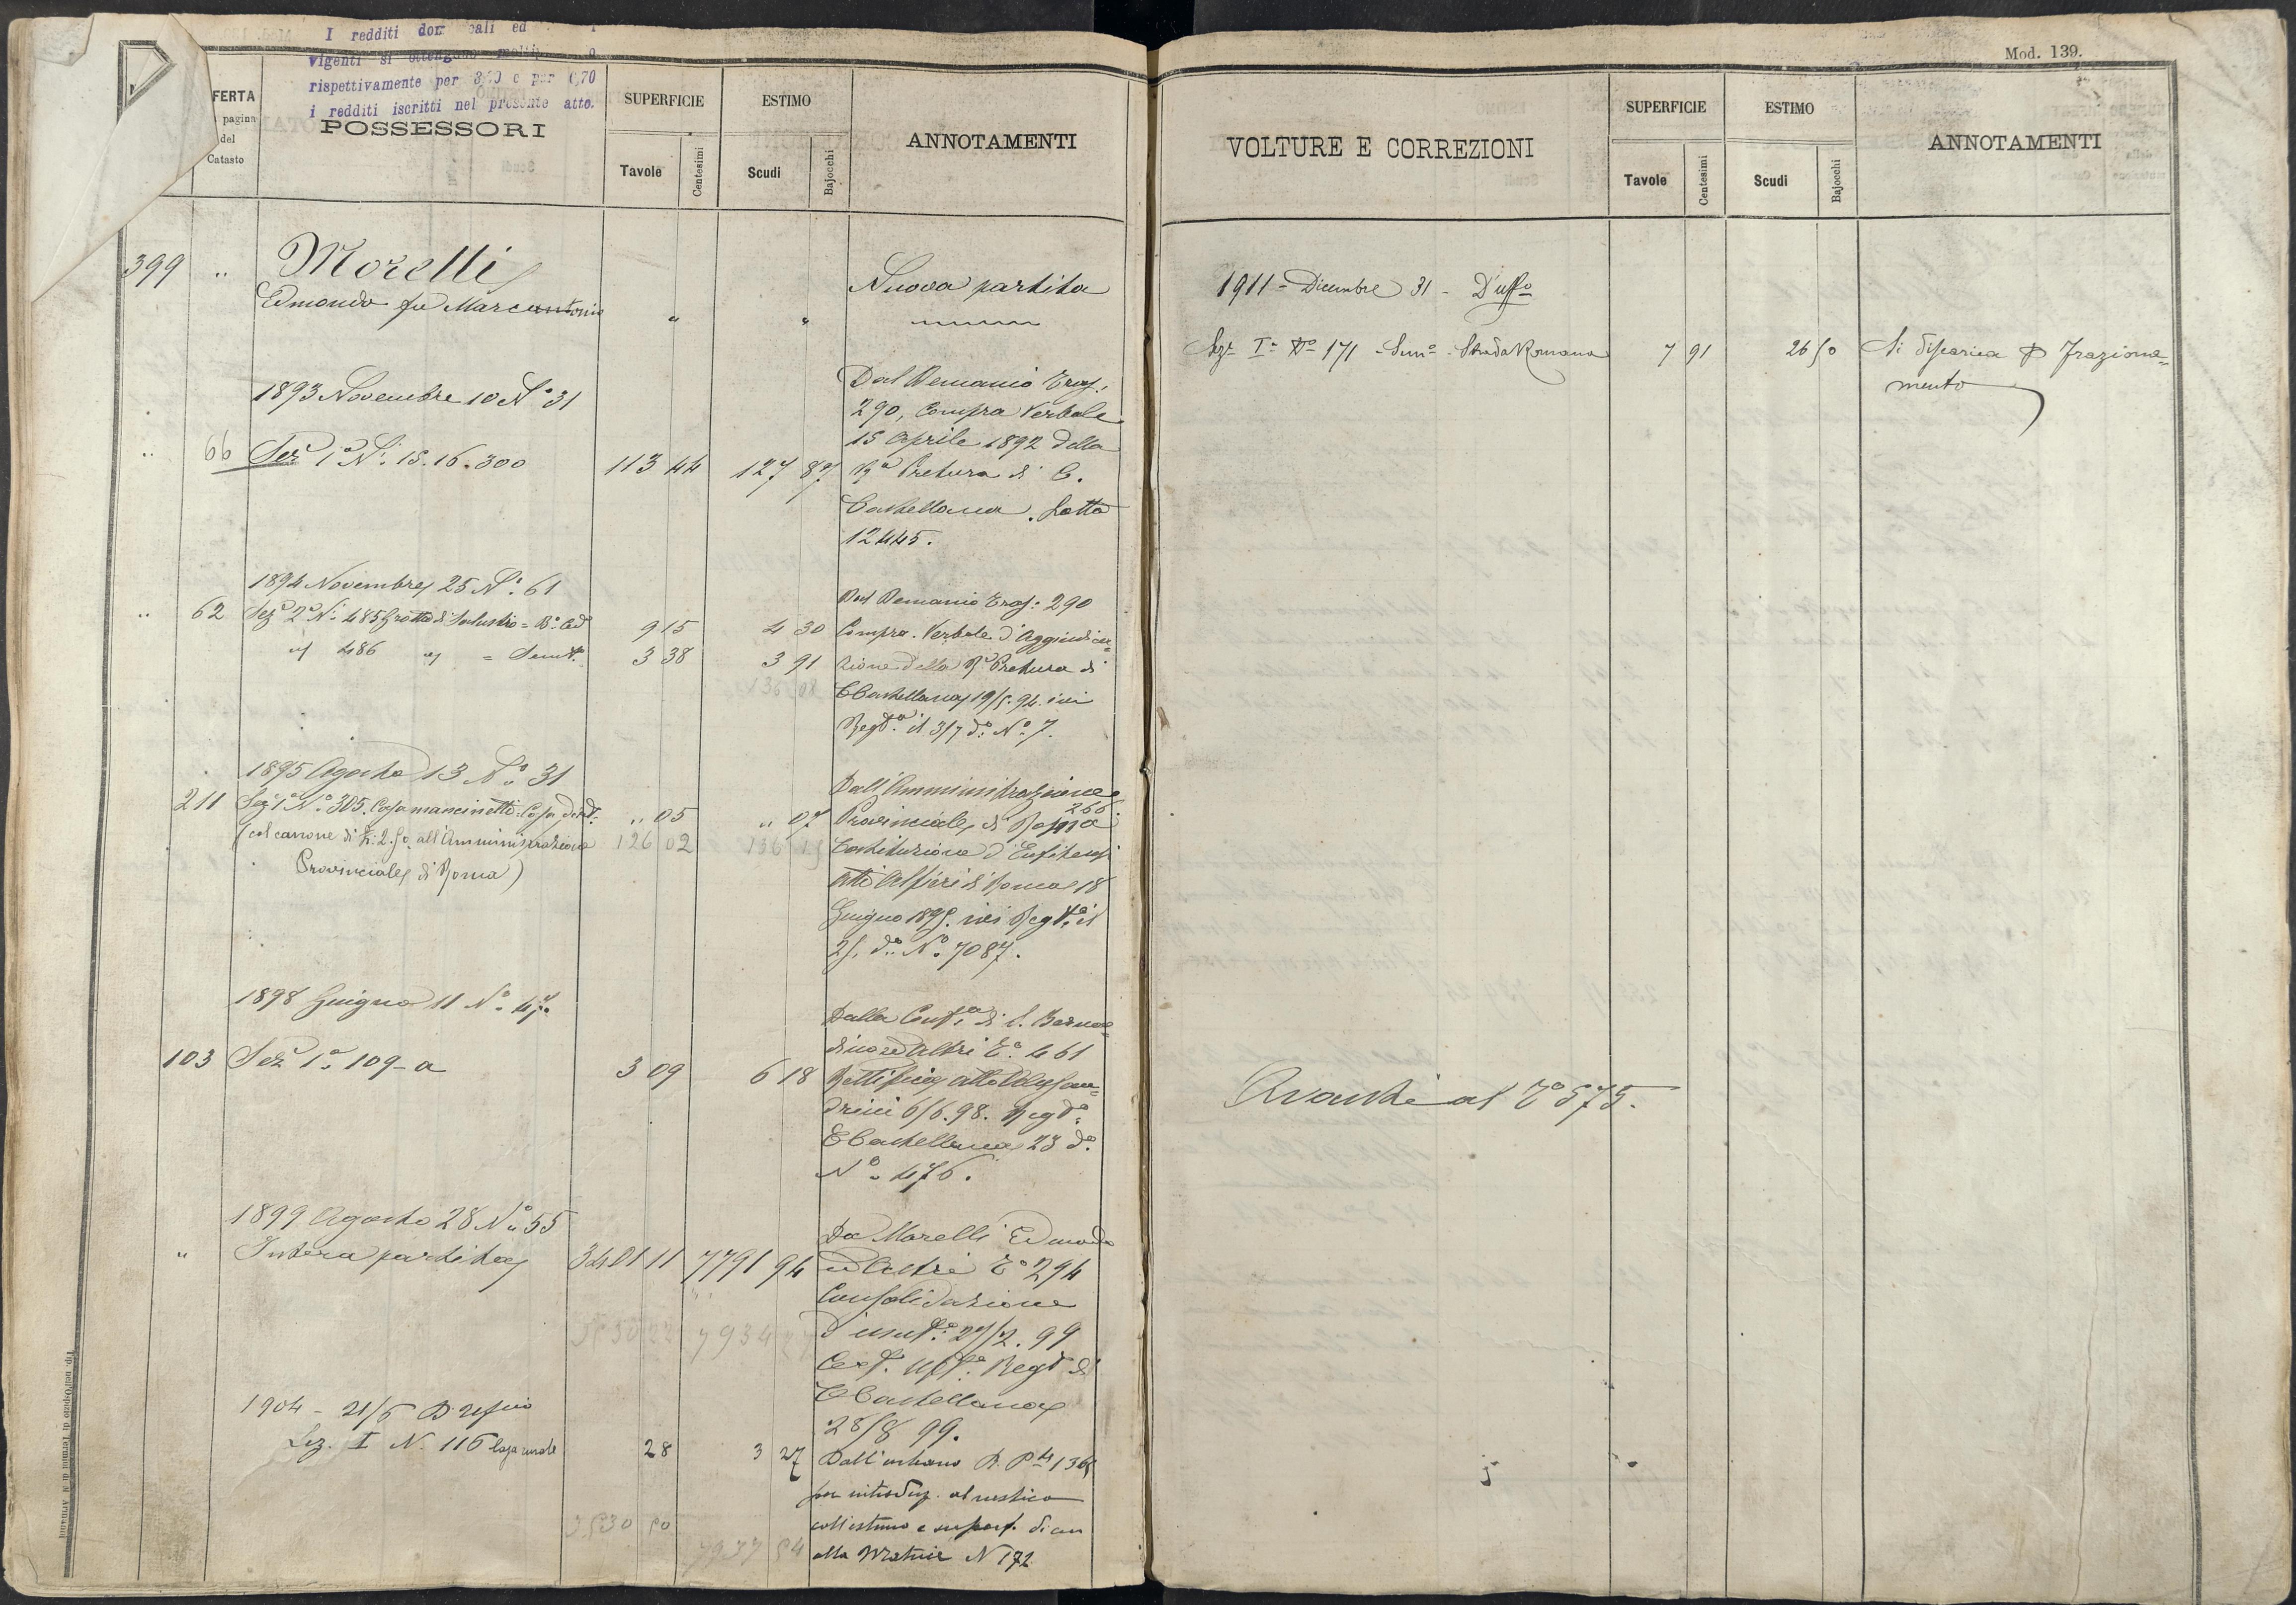 I redditi dom cali ed
vigenti si ottengono
rispettivamente per e per 6,70
i redditi iscritti nel presente atto.
FERTA
pagina
del
Catasto
POSSESSORI
SUPERFICIE
Tavole
Centesimi
ESTIMO
Scudi
Bajocchi
ANNOTAMENTI
399 " Morelli
Edmondo fu Marcantonio " "
Nuova partita
1893 Novembre 10 N° 31
" 66 Sez. 1ª Ni. 15.16.300 113 44 127 87
Dal Demanio
290, Compra Verbale
15 Aprile 1892 della
Rª Pretura di C.
Castellana. Lotto
12445.
1894 Novembre 25 N° 61
" 62 Sez 2ª N. 485 Grotta di Salustio = 9 15 4 30
" 486 " = Semvo. 3 38 3 91
136 08
Dal Demanio 290
Compra. Verbale d'Aggiudica=
zione della Rª Pretura di
C Castellana 19/5.94. ivi
Regto il 3/7 do. No. 7.
1895 Agosto 13 N° 31
211 Sez 1ª N° 305. Casa mancinetti. Casa " 05 " 07
(col canone di all'Amministrazione 126 02 136 15
Provinciale di Roma)
Dall'Amministrazione
Provinciale di Roma 266
Costituzione d'Enfiteusi
atto Alfieri di Roma 18
Giugno 1895. ivi Regto il
25. do. N° 7087.
1898 Giugno 11 N° 47.
103 Sez 1ª 109-a 3 09 6 18
Dalla Confª di S. Bernar=
dino ed altri To. 461
Rettifica atto
drini 6/6.98. Regto.
C Castellana 23 do.
N° 476.
1899 Agosto 28 N° 55
" Intera partita 3401 11 7791 94
Da Morelli Edmondo
ed Altri To 294
Consolidazione
d'usufo. 27/2.99
Regto di
C Castellana
28/8 99.
7934 27
1904 - 21/6 D'ufficio
Sez. I N. 116 Casa rurale 28 3 27
Dall'urbano 136
per introduz. al rustico
coll'estimo e superf. di cui
alla Matrice N 172
3530 50
7937 54
Tip. dell'Ospizio di Termini di A. Armanni
Mod. 139.
VOLTURE E CORREZIONI
SUPERFICIE
Tavole
Centesimi
ESTIMO
Scudi
Bajocchi
ANNOTAMENTI
1911 - Dicembre 31 - D'uffo
Sezne Iª No 171 - Semo - Strada Romana 7 91 26 50 Si discarica p Fraziona=
mento
Avanti al To 575.